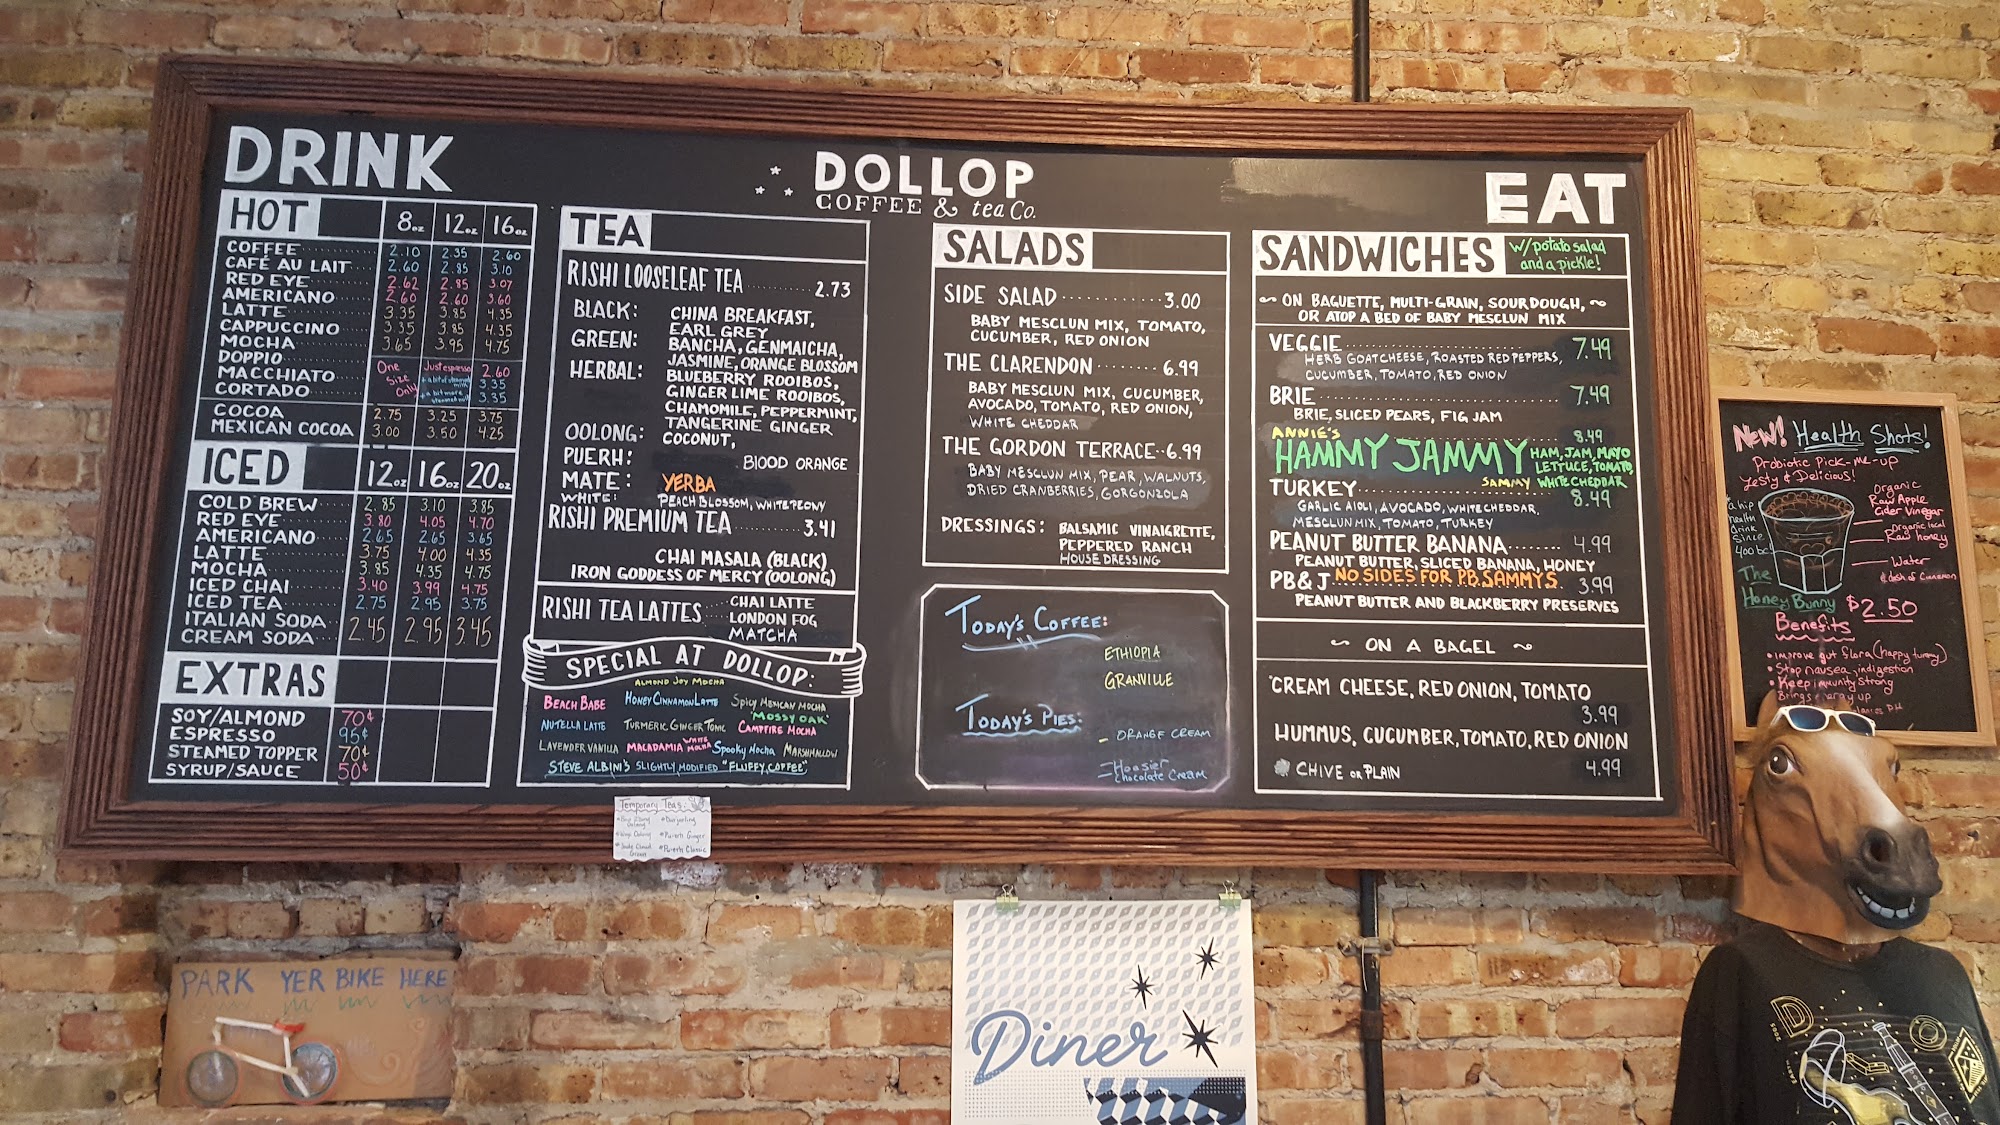 DRINK
DOLLOP
COFFEE & tea Co.
EAT
HOT 8oz 12oz 16oz
COFFEE 2.10 2.35 2.60
CAFÉ AU LAIT 2.60 2.85 3.10
RED EYE 2.62 2.85 3.07
AMERICANO 2.60 2.60 3.60
LATTE 3.35 3.85 4.35
CAPPUCCINO 3.35 3.85 4.35
MOCHA 3.65 3.95 4.75
DOPPIO One Size Only Just espresso 2.60
MACCHIATO + a bit of steamed milk 3.35
CORTADO + a bit more steamed milk 3.35
COCOA 2.75 3.25 3.75
MEXICAN COCOA 3.00 3.50 4.25
ICED 12oz 16oz 20oz
COLD BREW 2.85 3.10 3.85
RED EYE 3.80 4.05 4.70
AMERICANO 2.65 2.65 3.65
LATTE 3.75 4.00 4.35
MOCHA 3.85 4.35 4.75
ICED CHAI 3.40 3.99 4.75
ICED TEA 2.75 2.95 3.75
ITALIAN SODA
CREAM SODA 2.45 2.95 3.45
EXTRAS
SOY/ALMOND 70¢
ESPRESSO 95¢
STEAMED TOPPER 70¢
SYRUP/SAUCE 50¢
TEA
RISHI LOOSELEAF TEA 2.73
BLACK: CHINA BREAKFAST,
EARL GREY
GREEN: BANCHA, GENMAICHA,
JASMINE, ORANGE BLOSSOM
HERBAL: BLUEBERRY ROOIBOS,
GINGER LIME ROOIBOS,
CHAMOMILE, PEPPERMINT,
TANGERINE GINGER
OOLONG: COCONUT,
PUERH: BLOOD ORANGE
MATE: YERBA
WHITE: PEACH BLOSSOM, WHITE PEONY
RISHI PREMIUM TEA 3.41
CHAI MASALA (BLACK)
IRON GODDESS OF MERCY (OOLONG)
RISHI TEA LATTES CHAI LATTE
LONDON FOG
MATCHA
SPECIAL AT DOLLOP:
ALMOND JOY MOCHA
BEACH BABE HONEY CINNAMON LATTE SPICY MEXICAN MOCHA
"MOSSY OAK"
NUTELLA LATTE TURMERIC GINGER TONIC CAMPFIRE MOCHA
LAVENDER VANILLA MACADAMIA WHITE MOCHA Spooky Mocha MARSHMALLOW
STEVE ALBINI'S SLIGHTLY MODIFIED "FLUFFY COFFEE"
SALADS
SIDE SALAD 3.00
BABY MESCLUN MIX, TOMATO,
CUCUMBER, RED ONION
THE CLARENDON 6.99
BABY MESCLUN MIX, CUCUMBER,
AVOCADO, TOMATO, RED ONION,
WHITE CHEDDAR
THE GORDON TERRACE 6.99
BABY MESCLUN MIX, PEAR, WALNUTS,
DRIED CRANBERRIES, GORGONZOLA
DRESSINGS: BALSAMIC VINAIGRETTE,
PEPPERED RANCH
HOUSE DRESSING
TODAY'S COFFEE:
ETHIOPIA
GRANVILLE
TODAY'S PIES:
- ORANGE CREAM
Hoosier
Chocolate Cream
SANDWICHES w/potato salad
and a pickle!
~ ON BAGUETTE, MULTI-GRAIN, SOURDOUGH, ~
OR ATOP A BED OF BABY MESCLUN MIX
VEGGIE 7.49
HERB GOATCHEESE, ROASTED RED PEPPERS,
CUCUMBER, TOMATO, RED ONION
BRIE 7.49
BRIE, SLICED PEARS, FIG JAM
ANNIE'S 8.49
HAMMY JAMMY HAM, JAM, MAYO
LETTUCE, TOMATO,
SAMMY WHITE CHEDDAR
TURKEY 8.49
GARLIC AIOLI, AVOCADO, WHITE CHEDDAR,
MESCLUN MIX, TOMATO, TURKEY
PEANUT BUTTER BANANA 4.99
PEANUT BUTTER, SLICED BANANA, HONEY
PB&J NO SIDES FOR P.B. SAMMYS 3.99
PEANUT BUTTER AND BLACKBERRY PRESERVES
~ ON A BAGEL ~
CREAM CHEESE, RED ONION, TOMATO
3.99
HUMMUS, CUCUMBER, TOMATO, RED ONION
4.99
CHIVE OR PLAIN
New! Health Shots!
Probiotic Pick-me-up
Zesty & Delicious!
a hip
health
drink
Since
400 bc!
Organic
Raw Apple
Cider Vinegar
Organic local
Raw honey
Water
& dash of Cinnamon
The
Honey Bunny $2.50
Benefits
• improve gut flora (happy tummy)
• Stop nausea, indigestion
• Keep immunity strong
Brings energy up
Temporary Teas:
Darjeeling
Pu-erh Ginger
Jade Cloud
Green
Pu-erh Classic
PARK YER BIKE HERE
Diner